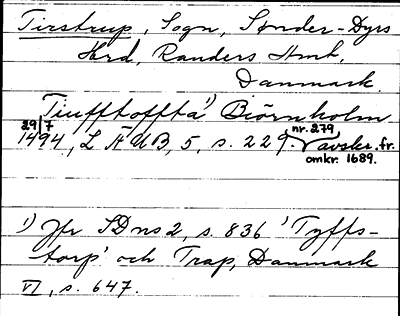 Tirstrup, Sogn, Sønder-Dyrs
Hrd, Randers Amt,
Danmark.
Tiufftoffta¹⁾ Biörnholm
29/7 1494, LÄUB, 5, s. 229. nr. 279 avskr. fr.
omkr. 1689.
¹⁾ Jfr SDns 2, s. 836 'Tyffs-
torp' och Trap, Danmark
VI, s. 647.